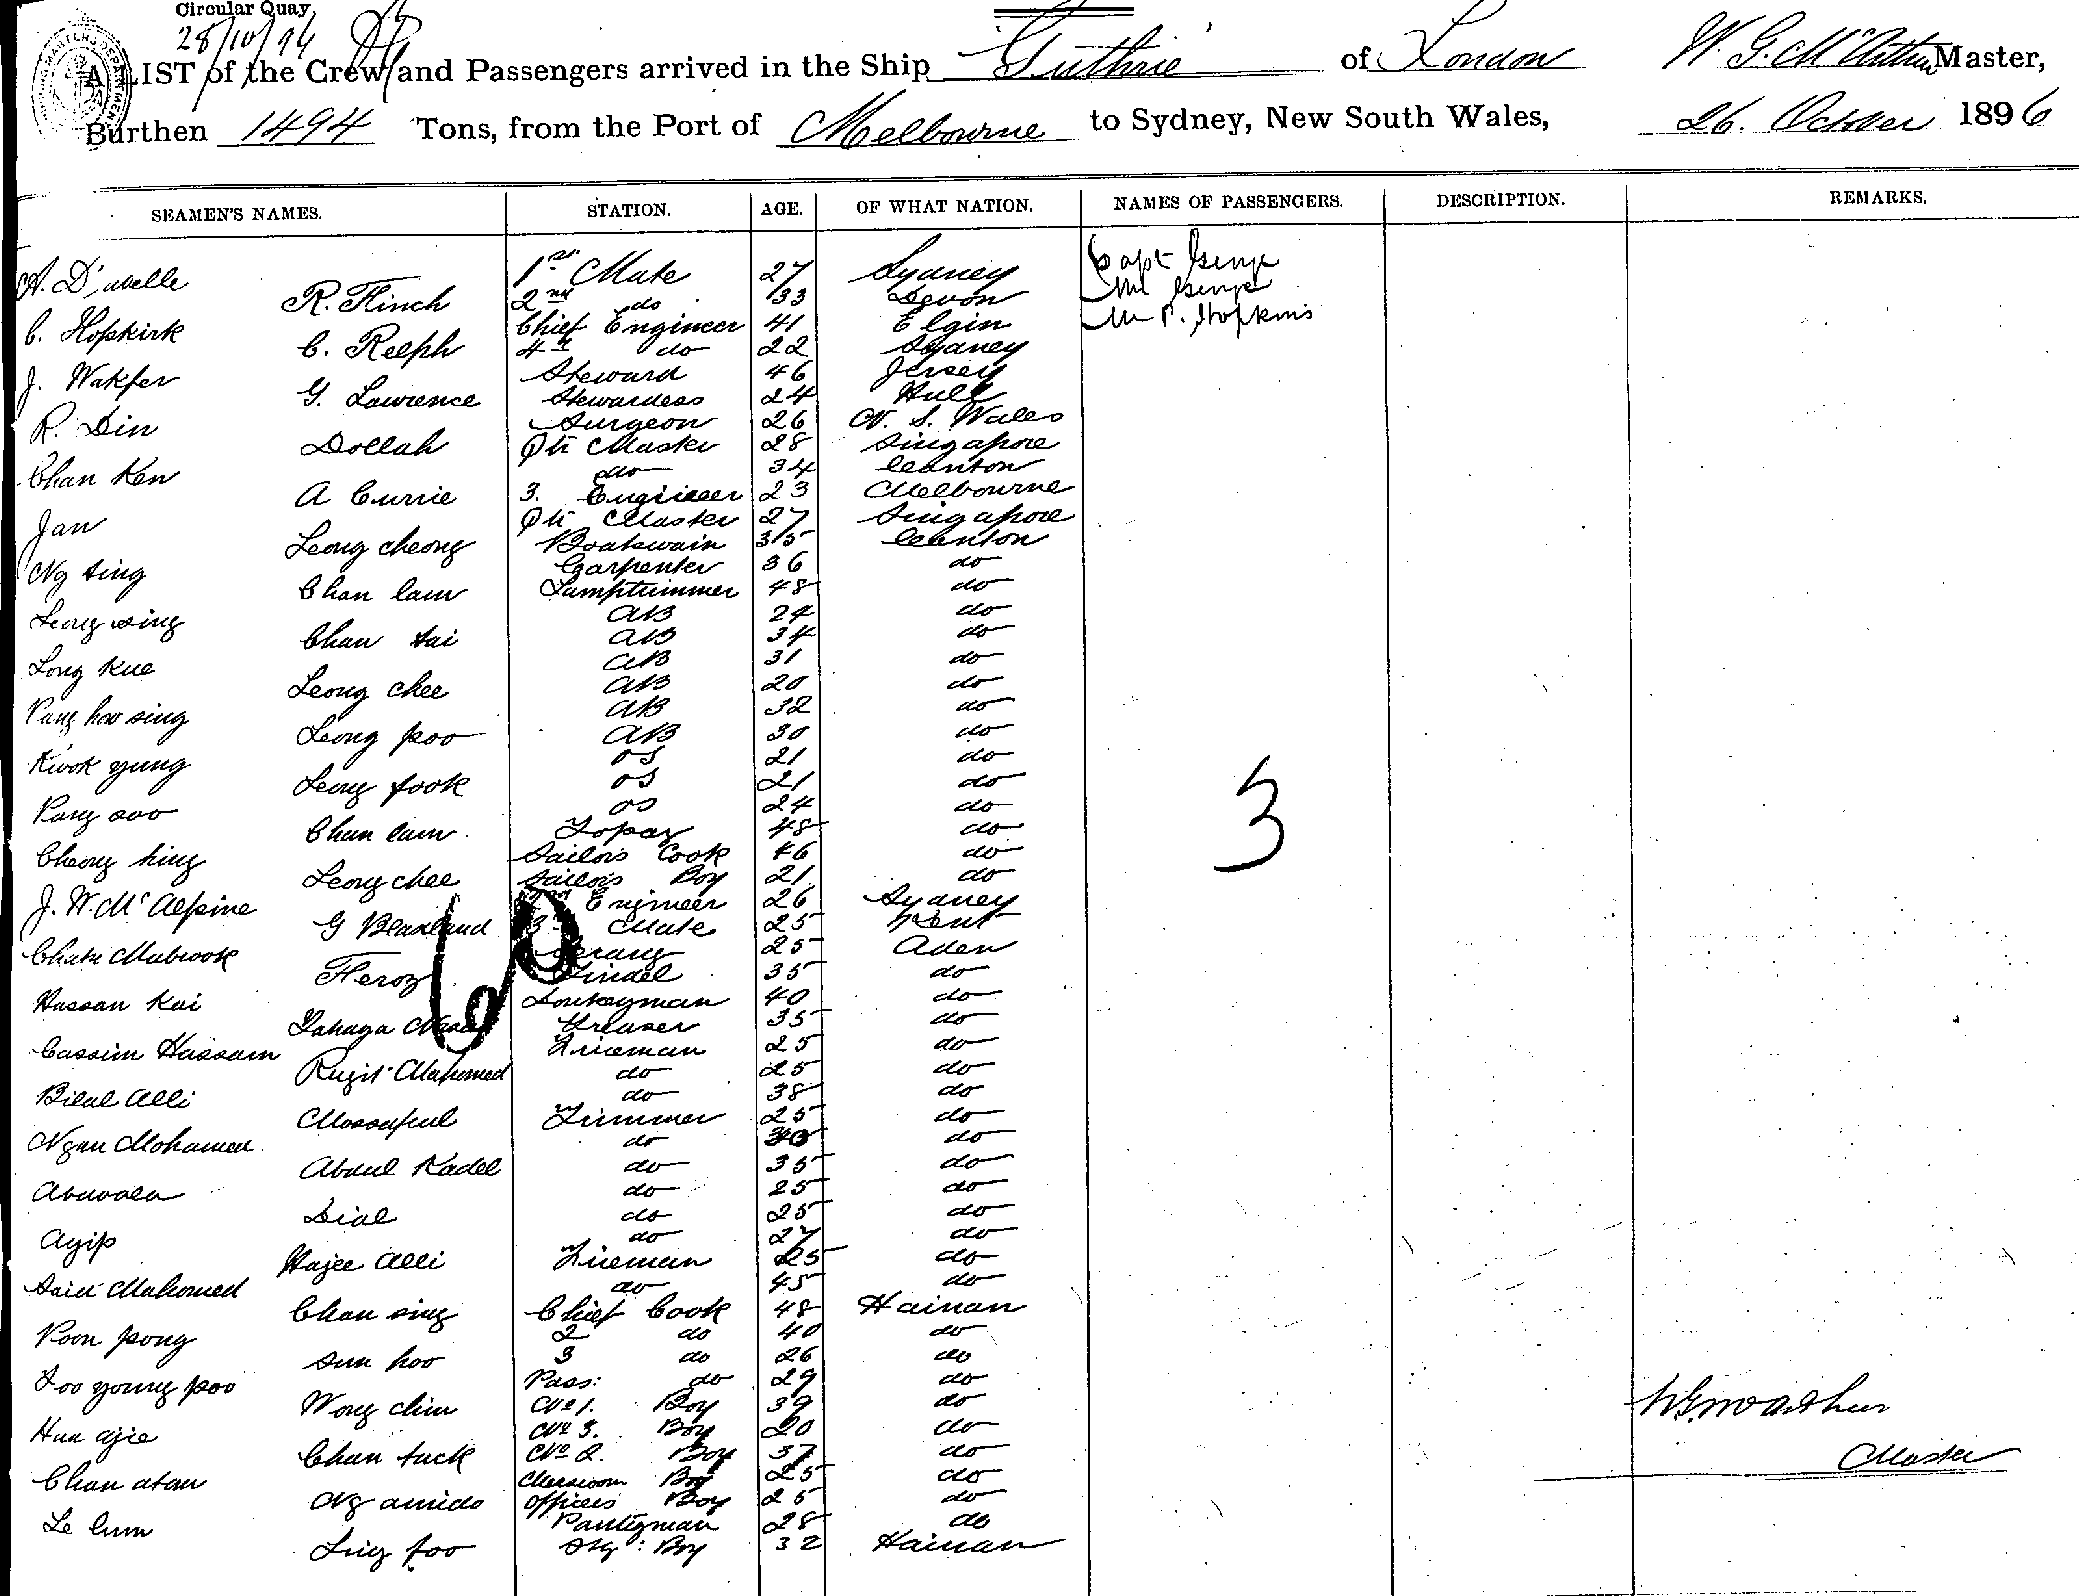 Circular Quay
28/10/96
A LIST of the Crew and Passengers arrived in the Ship Guthrie of London W. G. McArthur Master,
Burthen 1494 Tons, from the Port of Melbourne to Sydney, New South Wales, 26. October 1896
SEAMEN'S NAMES. STATION. AGE. OF WHAT NATION. NAMES OF PASSENGERS. DESCRIPTION. REMARKS.
1st Mate 27 Sydney Capt
R. Flinch 2nd do 33 Devon
C. Hopkirk Chief Engineer 41 Elgin Mr P. Hopkins
C. Relph 4th do 22 Sydney
J. Wakfer Steward 46 Jersey
G. Lawrence Stewardess 24 Hull
R. Din Surgeon 26 N. S. Wales
Dollah Qtr Master 28 Singapore
Chan Ken do 34 Canton
A Currie 3. Engineer 23 Melbourne
Jan Qtr Master 27 Singapore
Leong cheong Boatswain 35 Canton
Ng sing Carpenter 36 do
Chan lam Lamptrimmer 48 do
Leong sing AB 24 do
Chan sai AB 34 do
Long Kue AB 31 do
Leong chee AB 20 do
Pang hoo sing AB 32 do
Leong poo AB 30 do
Kwok yung OS 21 do
Leong fook OS 21 do
Pang soo OS 24 do
Chan lam Topaz 48 do
Cheong hing Sailors Cook 46 do
Leong chee Sailors Boy 21 do
J. W. McAlpine Engineer 26 Sydney
G Blaxland 3 Mate 25 Kent
Mabrook Serang 25 Aden
Feroz Tindel 35 do
Hassan Kai Donkeyman 40 do
Greaser 35 do
Cassim Hassam Fireman 25 do
Mahomed do 25 do
Bilal Alli do 38 do
Trimmer 25 do
Ngau Mohamed do do
Abdul Kadel do 35 do
do 25 do
Bial do 25 do
Agip do 27 do
Hajee Alli Fireman 25 do
Said Mahomed do 45 do
Chan sing Chief Cook 48 Hainan
Poon pong 2 do 40 do
Sun hoo 3 do 26 do
Foo young poo Pass: do 29 do
Wong chin No 1. Boy 39 do
Hun ajie No 3. Boy 20 do
Chan tuck No 2. Boy 37 do
Chan atau Messroom Boy 25 do
Ng amido Officers Boy 25 do
Le lum Pantryman 28 do
Ling foo Boy 32 Hainan
3
60
W G McArthur
Master